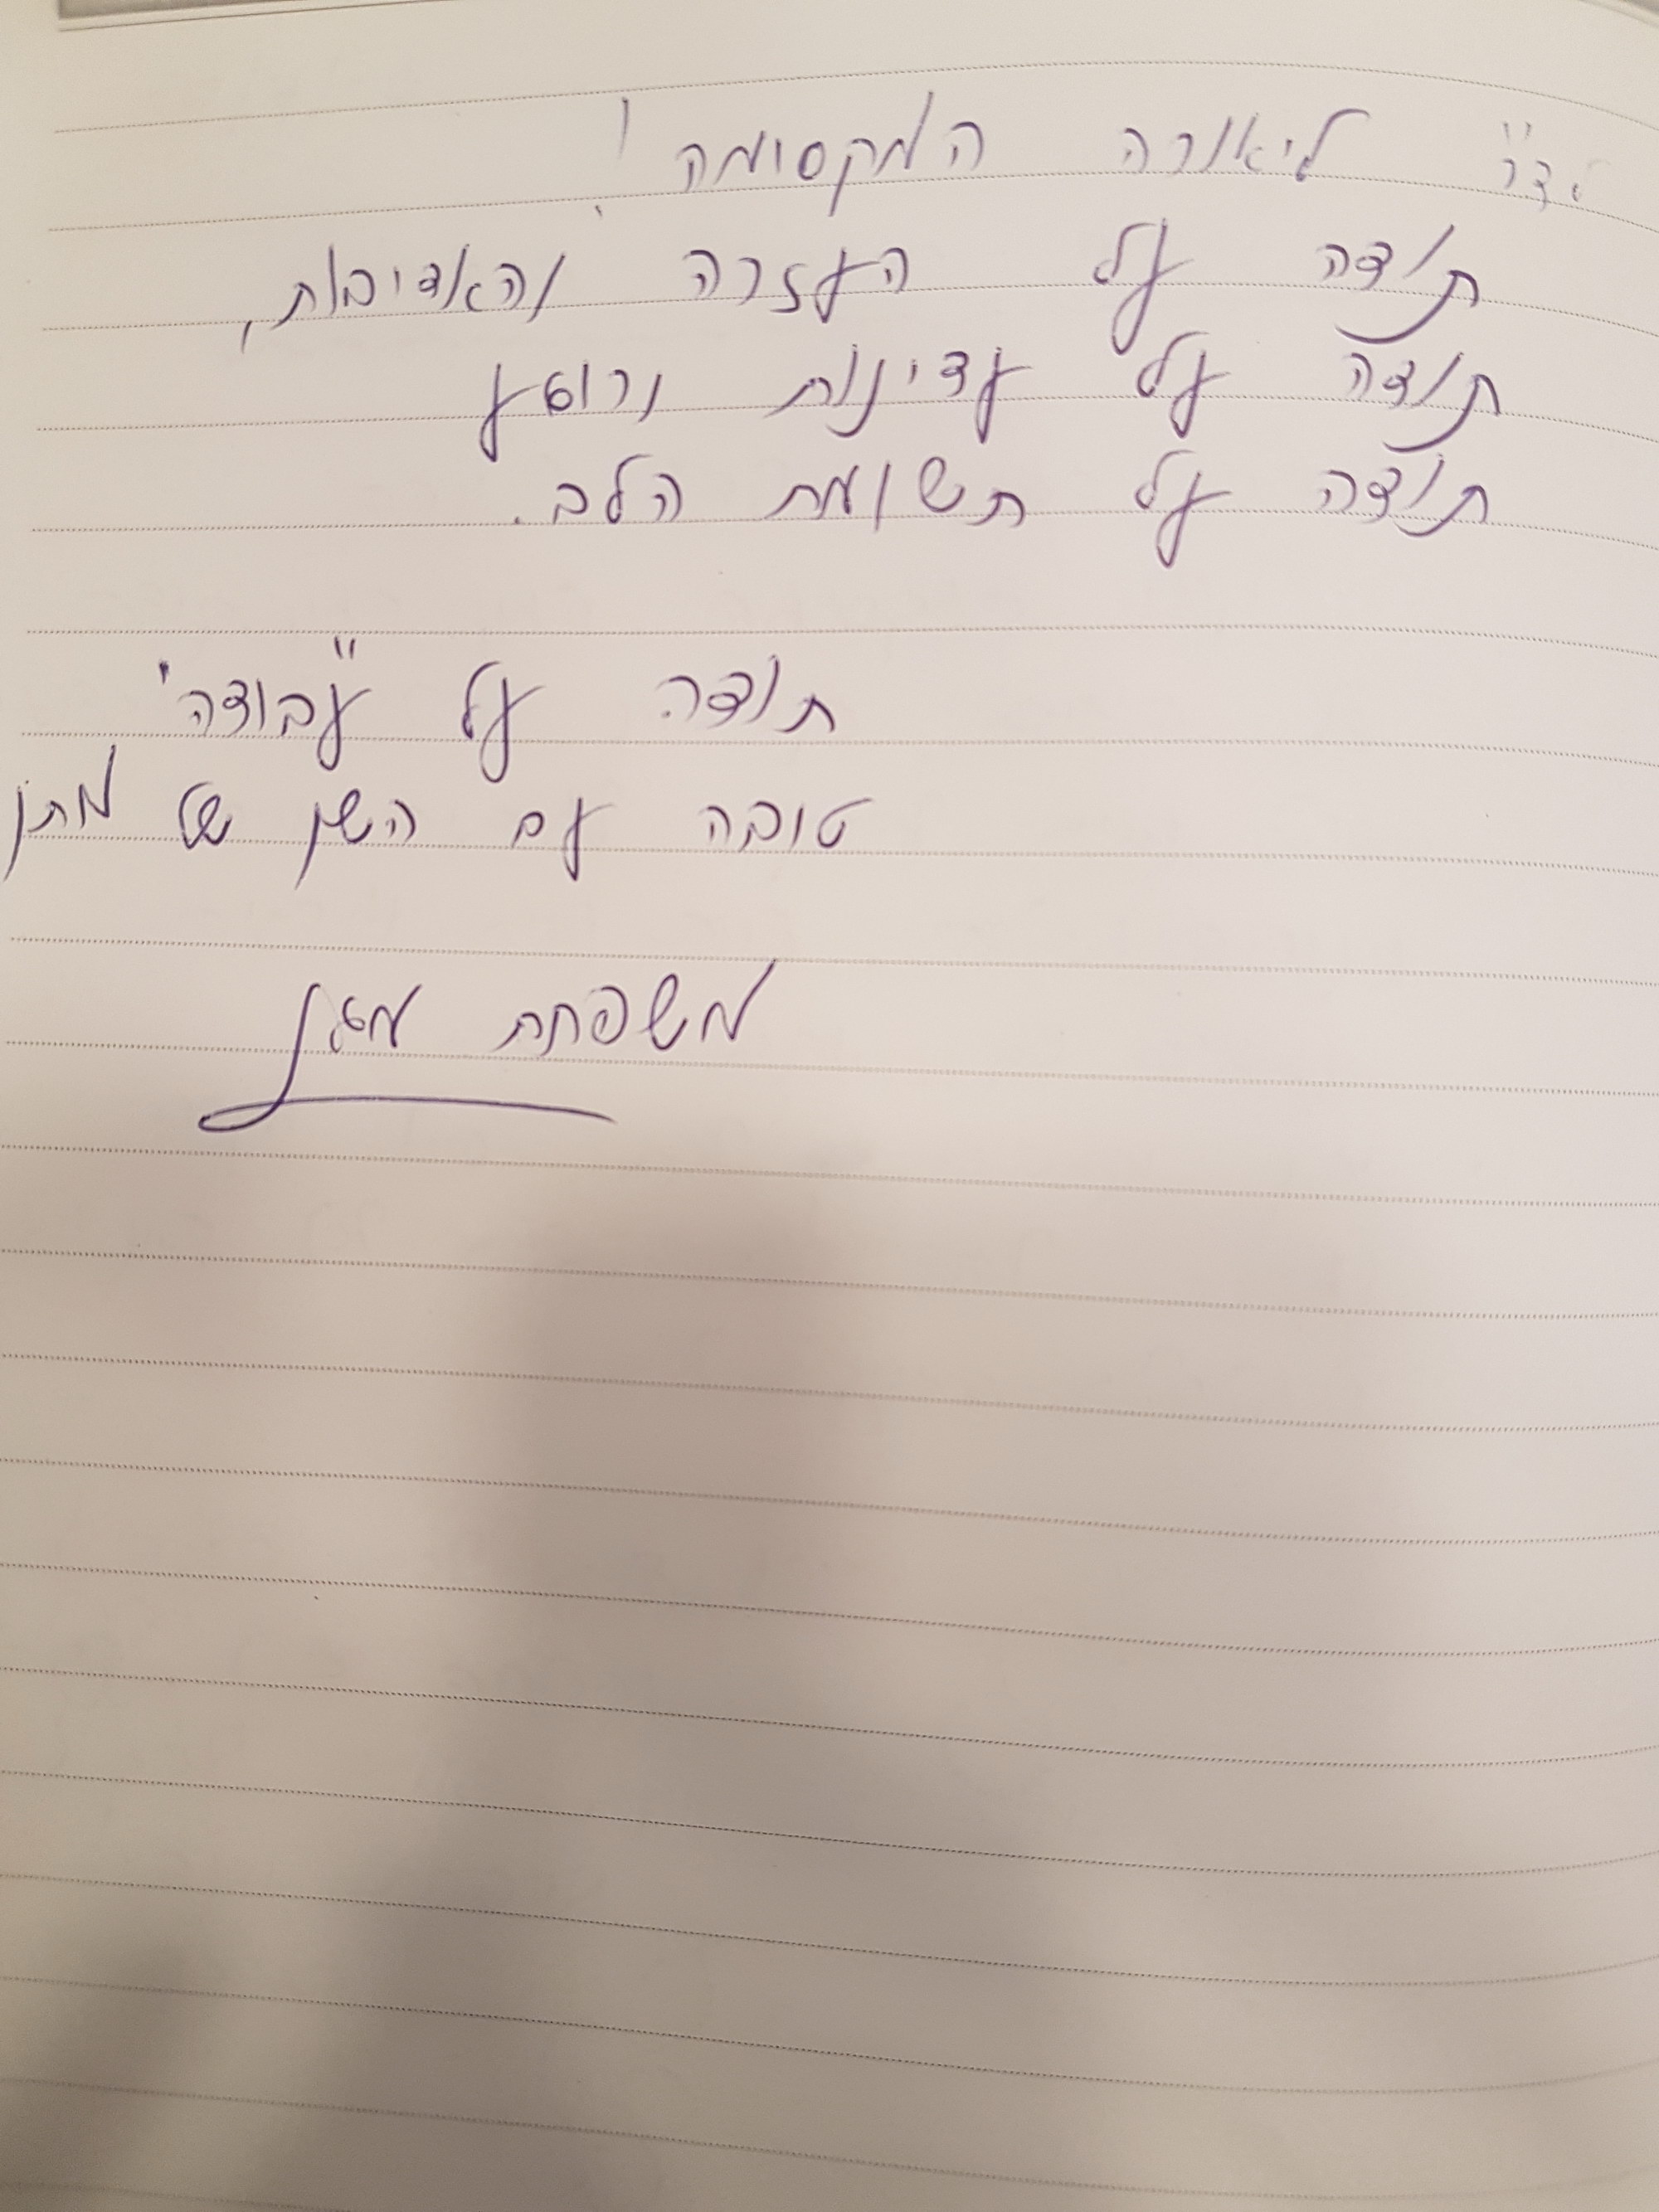 לד"ר ליאורה המקסימה!
תודה על העזרה והאדיבות,
תודה על עדינות ורוגע
תודה על תשומת הלב.
תודה על "עבודה"
טובה עם השן של מתן
משפחת מגן